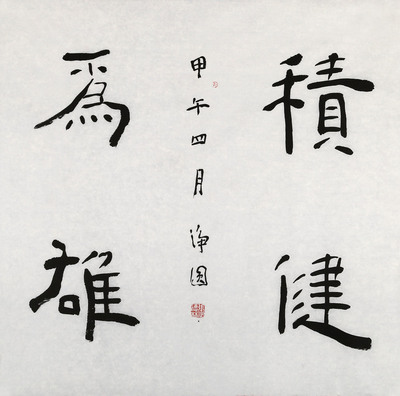 積健
爲雄
甲午四月淨圓